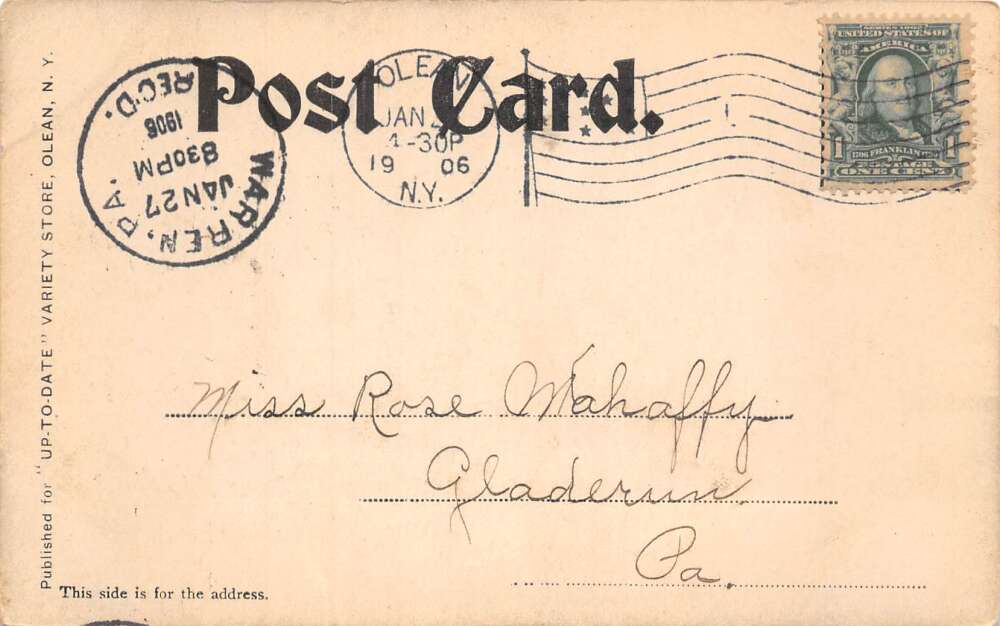 Post Card.
OLEAN
JAN
4-30P
19 06
N.Y.
WARREN, PA.
JAN 27
830PM
1906
REC'D.
SERIES 1902
UNITED STATES OF
AMERICA
1706 FRANKLIN 1790
POSTAGE
1 ONE CENT 1
Miss Rose Mahaffy
Gladerun
Pa.
This side is for the address.
Published for "UP-TO-DATE" VARIETY STORE, OLEAN, N. Y.